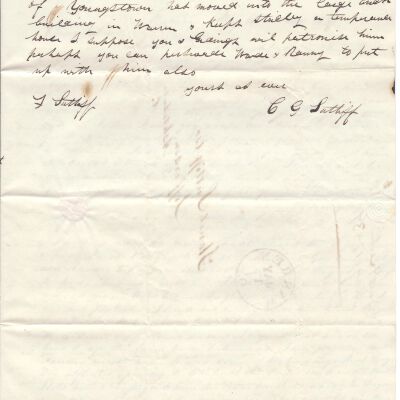 of Youngstown has moved into the large
building in Warren & keeps strictly a temperance
house I suppose you & will patronise him
perhaps you can persuade Wade & Ranny to put
up with him also
yours as ever
F Sutliff C G Sutliff